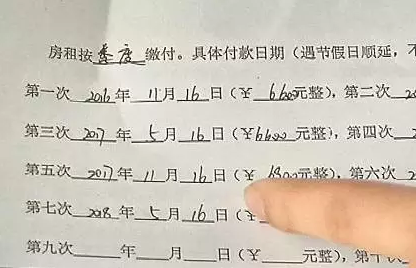 房租按季度缴付。具体付款日期（遇节假日顺延，不
第一次2016年11月16日（￥6600元整），第二次20
第三次2017年5月16日（￥6600元整），第四次
第五次2017年11月16日（￥1800元整），第六次2
第七次2018年5月16日（￥
第九次___年___月___日（￥___元整），第十次